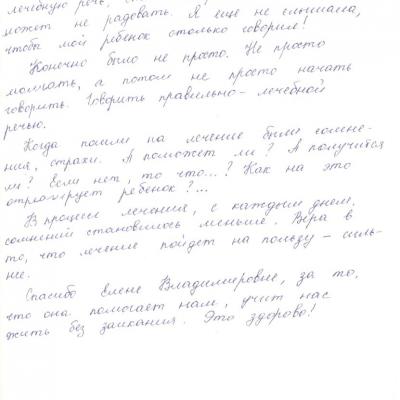 лечебную речь,
может не радовать. Я ещё не слышала,
чтобы мой ребёнок столько говорил!
Конечно было не просто. Не просто
молчать, а потом не просто начать
говорить. Говорить правильно – лечебной
речью.
Когда пошли на лечение были сомне-
ния, страхи. А поможет ли? А получится
ли? Если нет, то что...? Как на это
отреагирует ребёнок?...
В процессе лечения, с каждым днём,
сомнений становилось меньше. Вера в
то, что лечение пойдёт на пользу – силь-
нее.
Спасибо Елене Владимировне, за то,
что она помогает нам, учит нас
жить без заикания. Это здорово!